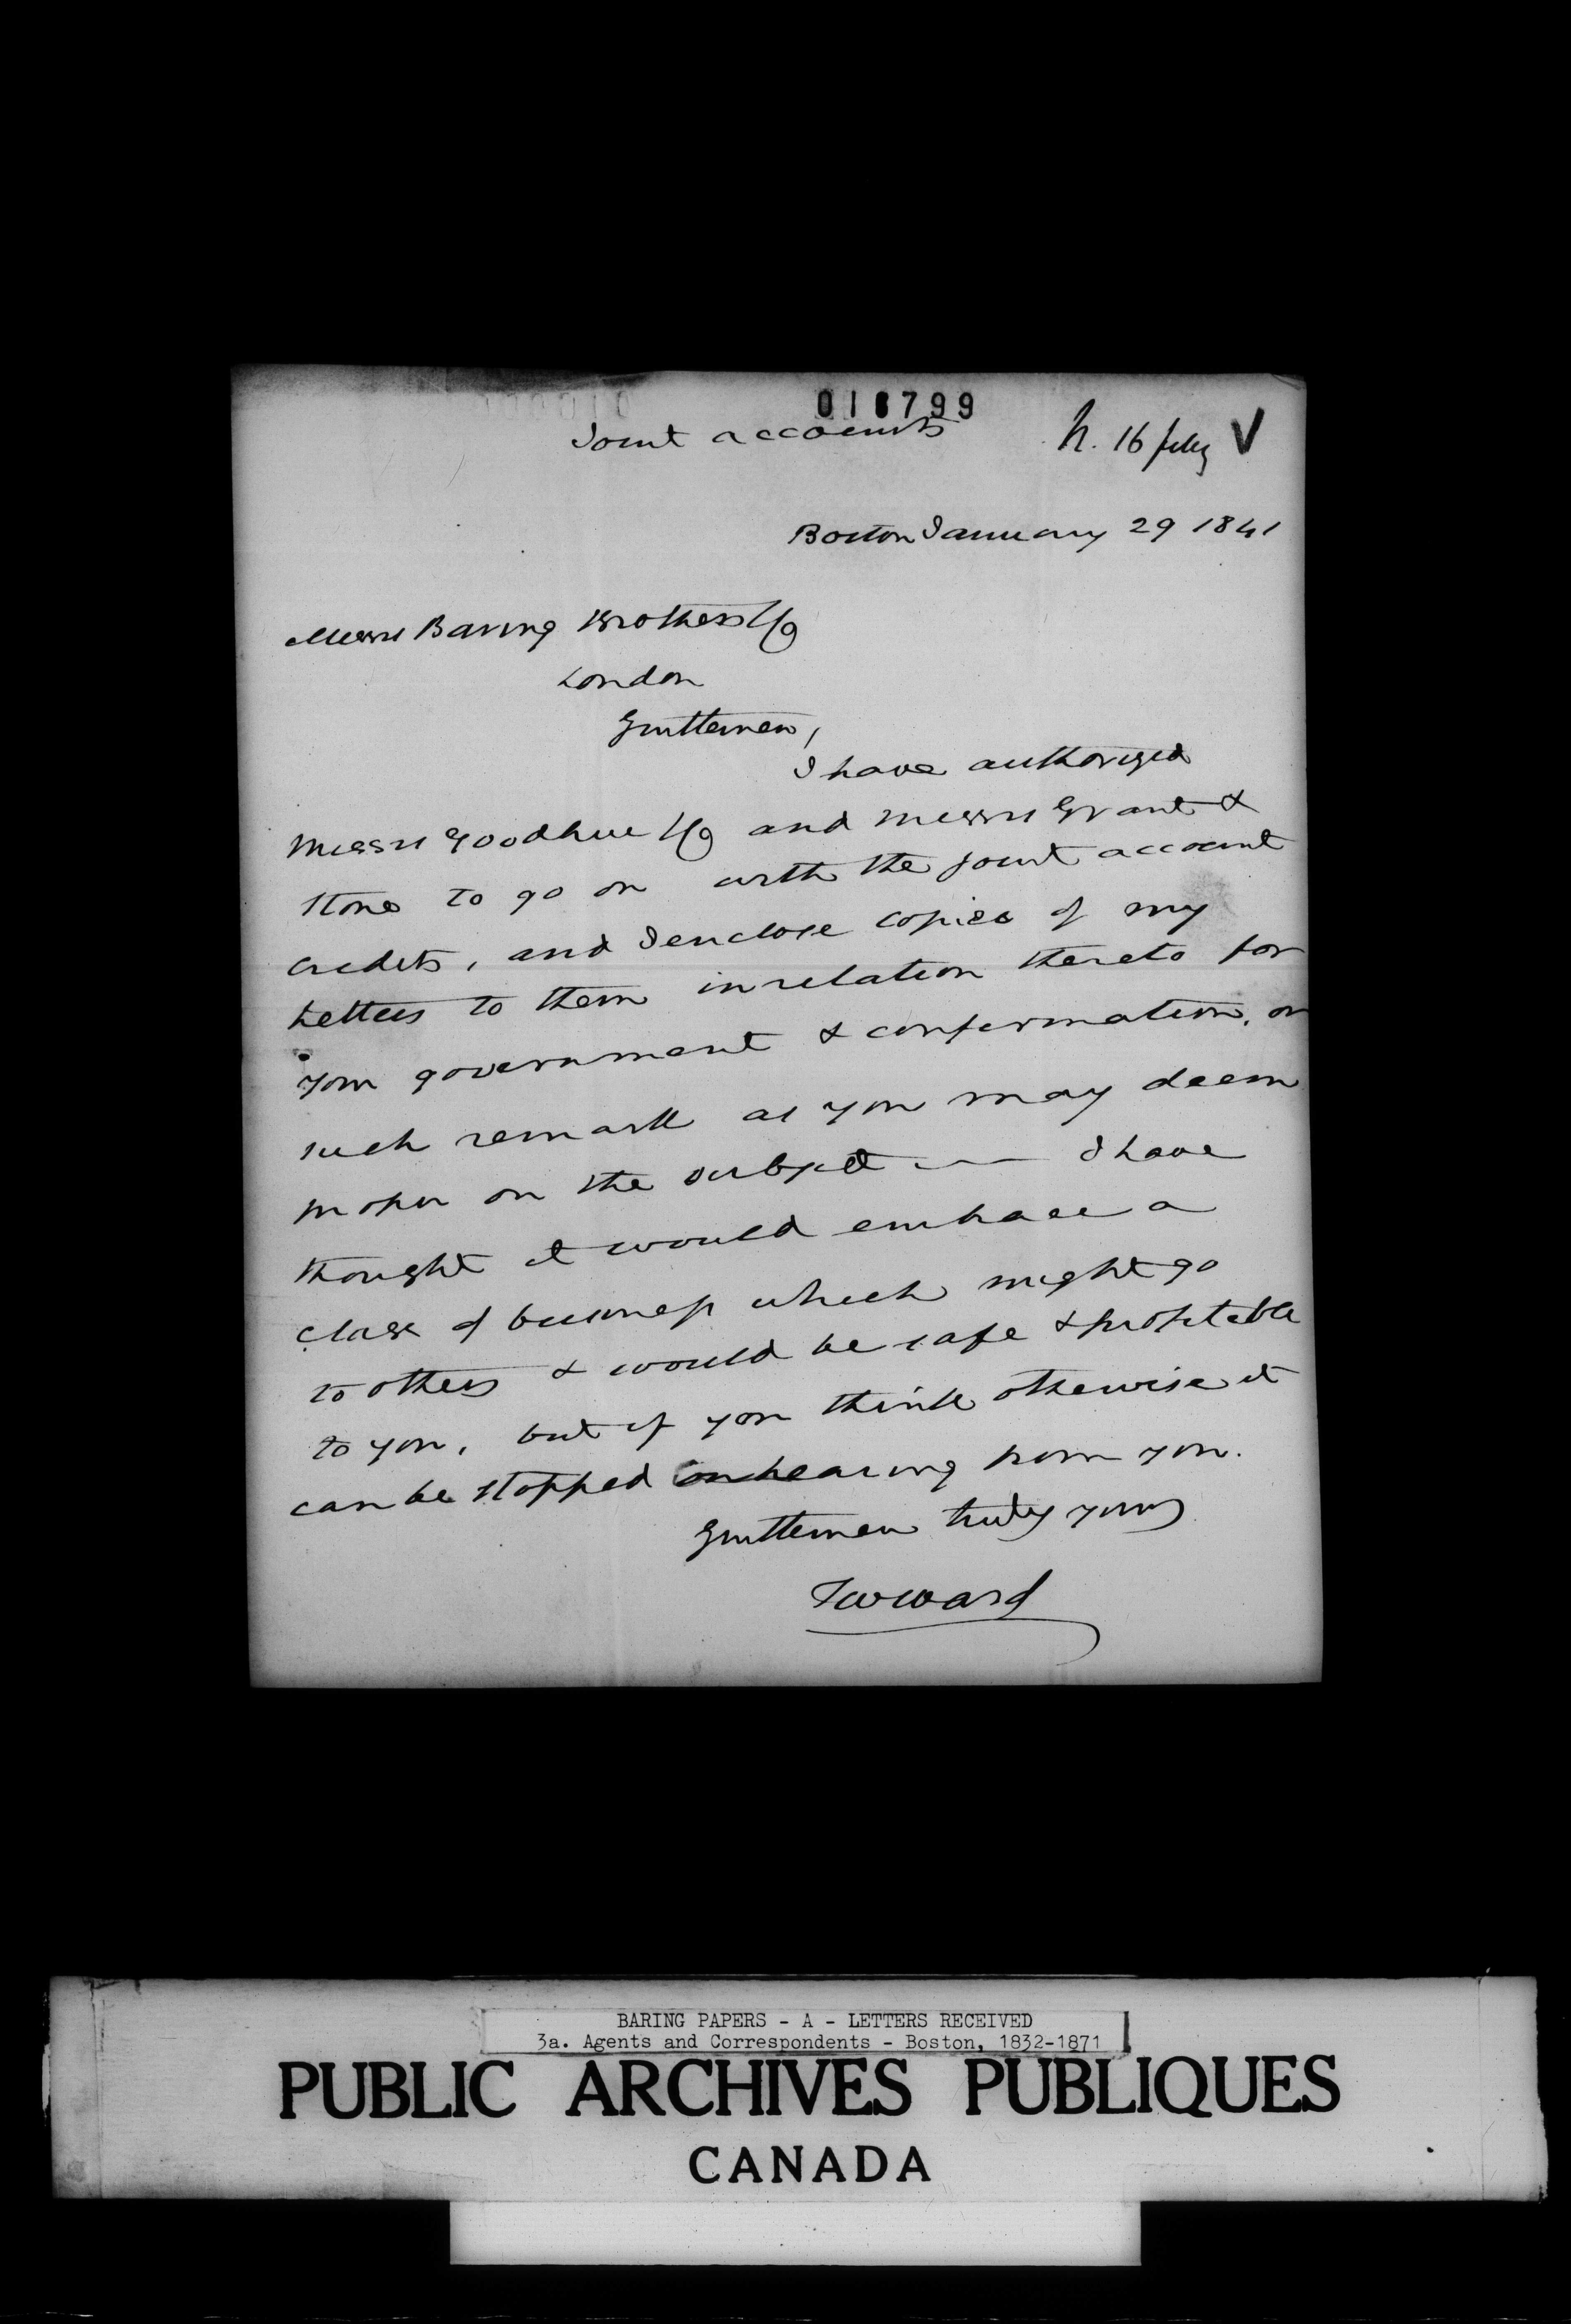 018799
Joint accounts
R. 16 feby V
Boston January 29 1841
Messrs Baring Brothers & Co
London
Gentlemen,
I have authorized
Messrs Goodhue & Co and Messrs Grant &
Stone to go on with the joint account
credits, and I enclose copies of my
Letters to them in relation thereto for
your government & confirmation, or
such remark as you may deem
proper on the subject — I have
thought it would embrace a
class of business which might go
to others & would be safe & profitable
to you, but if you think otherwise it
can be stopped on hearing from you.
Gentlemen truly yours
TWWard
BARING PAPERS - A - LETTERS RECEIVED
3a. Agents and Correspondents - Boston, 1832-1871
PUBLIC ARCHIVES PUBLIQUES
CANADA